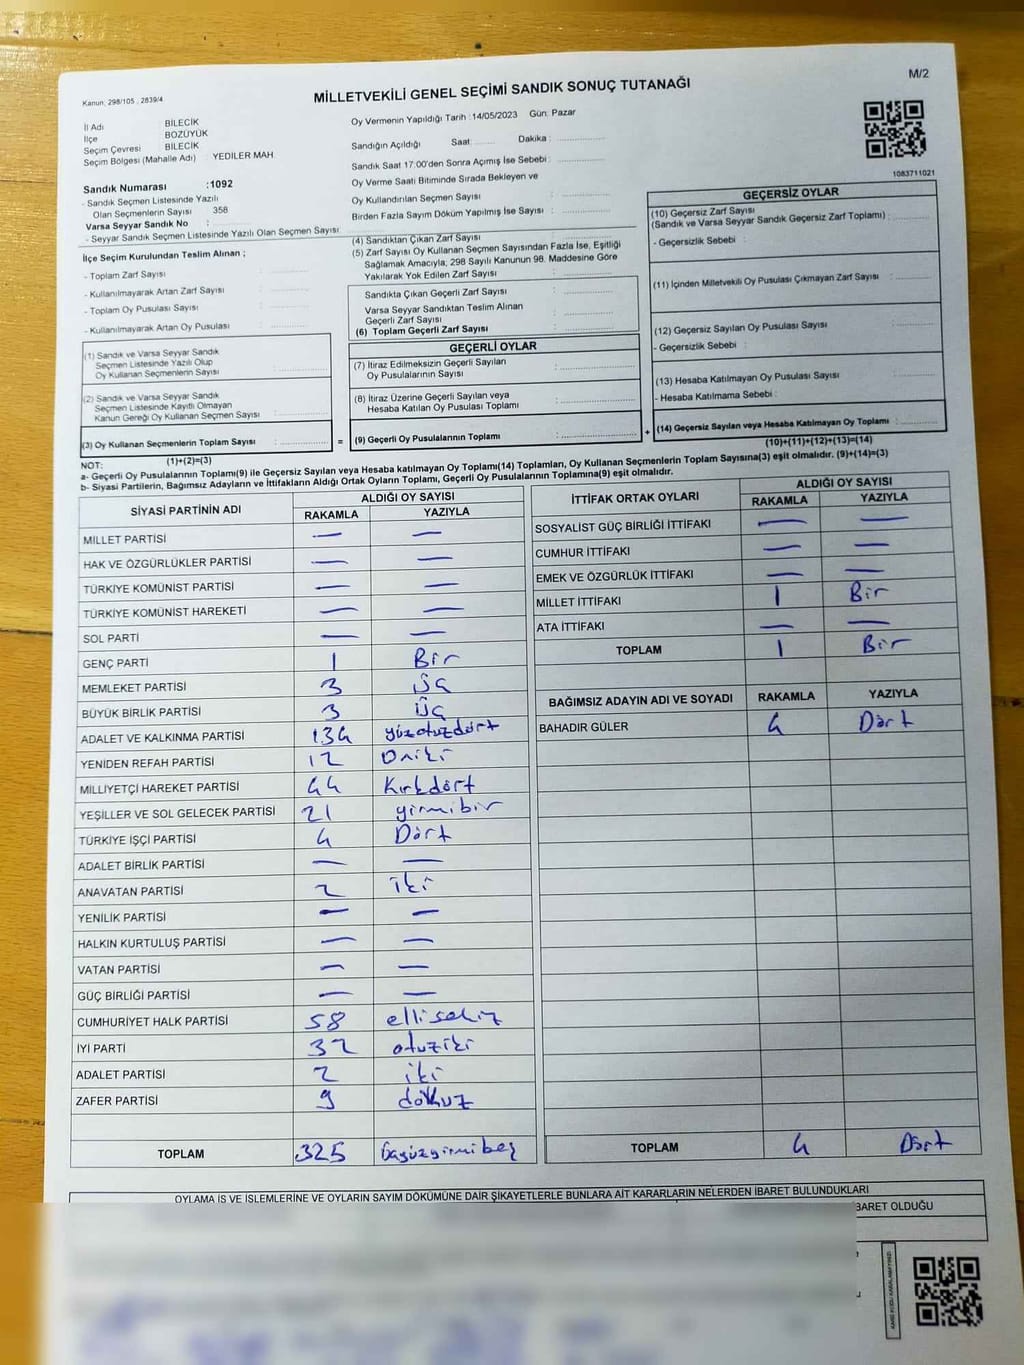 M/2
Kanun: 298/105 , 2839/4
MİLLETVEKİLİ GENEL SEÇİMİ SANDIK SONUÇ TUTANAĞI
İl Adı BİLECİK
İlçe BOZÜYÜK
Seçim Çevresi BİLECİK
Seçim Bölgesi (Mahalle Adı) YEDİLER MAH.
Sandık Numarası :1092
- Sandık Seçmen Listesinde Yazılı
Olan Seçmenlerin Sayısı 358
Varsa Seyyar Sandık No :
- Seyyar Sandık Seçmen Listesinde Yazılı Olan Seçmen Sayısı:
İlçe Seçim Kurulundan Teslim Alınan ;
- Toplam Zarf Sayısı :
- Kullanılmayarak Artan Zarf Sayısı :
- Toplam Oy Pusulası Sayısı :
- Kullanılmayarak Artan Oy Pusulası :
(1) Sandık ve Varsa Seyyar Sandık
Seçmen Listesinde Yazılı Olup
Oy Kullanan Seçmenlerin Sayısı :
(2) Sandık ve Varsa Seyyar Sandık
Seçmen Listesinde Kayıtlı Olmayan
Kanun Gereği Oy Kullanan Seçmen Sayısı :
(3) Oy Kullanan Seçmenlerin Toplam Sayısı :
(1)+(2)=(3)
Oy Vermenin Yapıldığı Tarih :14/05/2023 Gün: Pazar
Sandığın Açıldığı Saat Dakika :
Sandık Saat 17:00'den Sonra Açımış İse Sebebi :
Oy Verme Saati Bitiminde Sırada Bekleyen ve
Oy Kullandırılan Seçmen Sayısı :
Birden Fazla Sayım Döküm Yapılmış İse Sayısı :
(4) Sandıktan Çıkan Zarf Sayısı :
(5) Zarf Sayısı Oy Kullanan Seçmen Sayısından Fazla İse, Eşitliği
Sağlamak Amacıyla; 298 Sayılı Kanunun 98. Maddesine Göre
Yakılarak Yok Edilen Zarf Sayısı :
Sandıkta Çıkan Geçerli Zarf Sayısı :
Varsa Seyyar Sandıktan Teslim Alınan
Geçerli Zarf Sayısı :
(6) Toplam Geçerli Zarf Sayısı :
GEÇERLİ OYLAR
(7) İtiraz Edilmeksizin Geçerli Sayılan
Oy Pusulalarının Sayısı :
(8) İtiraz Üzerine Geçerli Sayılan veya
Hesaba Katılan Oy Pusulası Toplamı :
= (9) Geçerli Oy Pusulalarının Toplamı : +
1083711021
GEÇERSİZ OYLAR
(10) Geçersiz Zarf Sayısı
(Sandık ve Varsa Seyyar Sandık Geçersiz Zarf Toplamı) :
- Geçersizlik Sebebi :
(11) İçinden Milletvekili Oy Pusulası Çıkmayan Zarf Sayısı :
(12) Geçersiz Sayılan Oy Pusulası Sayısı :
- Geçersizlik Sebebi :
(13) Hesaba Katılmayan Oy Pusulası Sayısı :
- Hesaba Katılmama Sebebi :
(14) Geçersiz Sayılan veya Hesaba Katılmayan Oy Toplamı :
(10)+(11)+(12)+(13)=(14)
NOT:
a- Geçerli Oy Pusulalarının Toplamı(9) ile Geçersiz Sayılan veya Hesaba katılmayan Oy Toplamı(14) Toplamları, Oy Kullanan Seçmenlerin Toplam Sayısına(3) eşit olmalıdır. (9)+(14)=(3)
b- Siyasi Partilerin, Bağımsız Adayların ve İttifakların Aldığı Ortak Oyların Toplamı, Geçerli Oy Pusulalarının Toplamına(9) eşit olmalıdır.
SİYASİ PARTİNİN ADI ALDIĞI OY SAYISI
RAKAMLA YAZIYLA
MİLLET PARTİSİ — —
HAK VE ÖZGÜRLÜKLER PARTİSİ — —
TÜRKİYE KOMÜNİST PARTİSİ — —
TÜRKİYE KOMÜNİST HAREKETİ — —
SOL PARTİ — —
GENÇ PARTİ 1 Bir
MEMLEKET PARTİSİ 3 Üç
BÜYÜK BİRLİK PARTİSİ 3 Üç
ADALET VE KALKINMA PARTİSİ 134 yüzotuzdört
YENİDEN REFAH PARTİSİ 12 Oniki
MİLLİYETÇİ HAREKET PARTİSİ 44 Kırkdört
YEŞİLLER VE SOL GELECEK PARTİSİ 21 yirmibir
TÜRKİYE İŞÇİ PARTİSİ 4 Dört
ADALET BİRLİK PARTİSİ — —
ANAVATAN PARTİSİ 2 İki
YENİLİK PARTİSİ — —
HALKIN KURTULUŞ PARTİSİ — —
VATAN PARTİSİ — —
GÜÇ BİRLİĞİ PARTİSİ — —
CUMHURİYET HALK PARTİSİ 58 ellisekiz
İYİ PARTİ 32 otuziki
ADALET PARTİSİ 2 iki
ZAFER PARTİSİ 9 dokuz
TOPLAM 325 üçyüzyirmibeş
İTTİFAK ORTAK OYLARI ALDIĞI OY SAYISI
RAKAMLA YAZIYLA
SOSYALİST GÜÇ BİRLİĞİ İTTİFAKI — —
CUMHUR İTTİFAKI — —
EMEK VE ÖZGÜRLÜK İTTİFAKI — —
MİLLET İTTİFAKI 1 Bir
ATA İTTİFAKI — —
TOPLAM 1 Bir
BAĞIMSIZ ADAYIN ADI VE SOYADI RAKAMLA YAZIYLA
BAHADIR GÜLER 4 Dört
TOPLAM 4 Dört
OYLAMA İŞ VE İŞLEMLERİNE VE OYLARIN SAYIM DÖKÜMÜNE DAİR ŞİKAYETLERLE BUNLARA AİT KARARLARIN NELERDEN İBARET BULUNDUKLARI
İBARET OLDUĞU